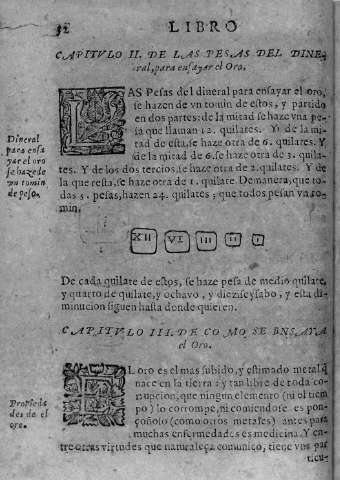 52 LIBRO
CAPITVLO II. DE LAS PESAS DEL DINE,
ral, para ensayar el Oro.
LAS Pesas del dineral para ensayar el oro,
se hazen de vn tomin de estos, y partido
en dos partes: de la mitad se haze vna pe
sa que llaman 12. quilates. Y de la mi-
tad de esta, se haze otra de 6. quilates. Y
de la mitad de 6. se haze otra de 3. quila-
tes. Y de los dos tercios, se haze otra de 2. quilates. Y de
la que resta, se haze otra de 1. quilate. De manera, que to-
das 5. pesas, hazen 24. quilates; que todos pesan vn to-
min.
Dineral
para ensa
yar el oro
se haze de
vn tomin
de peso.
XII VI III II I
De cada quilate de estos, se haze pesa de medio quilate,
y quarto de quilate, y ochavo, y dieziseysabo, y esta di-
minucion siguen hasta donde quieren.
CAPITVLO III. DE COMO SE ENSAYA
el Oro.
EL oro es el mas subido, y estimado metal q̃
nace en la tierra: y tan libre de toda co-
rrupcion, que ningun elemento (ni el tiem
po) lo corrompe, ni comiendose es pon-
çoñoso (como otros metales) antes para
muchas enfermedades es medicina. Y en-
tre otras virtudes que naturaleça comunico, tiene vna par
ticu-
Propieda
des de el
oro.